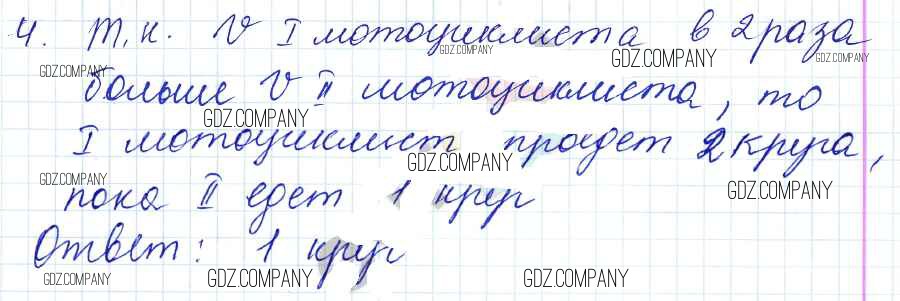 4. Т.к. V I мотоциклиста в 2 раза
больше V II мотоциклиста, то
I мотоциклист проедет 2 круга,
пока II едет 1 круг
Ответ: 1 круг
GDZ.COMPANY
GDZ.COMPANY
GDZ.COMPANY
GDZ.COMPANY
GDZ.COMPANY
GDZ.COMPANY
GDZ.COMPANY
GDZ.COMPANY
GDZ.COMPANY
GDZ.COMPANY
GDZ.COMPANY
GDZ.COMPANY